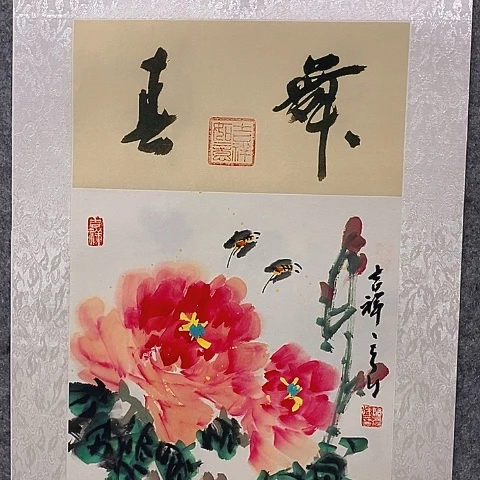 舞春
吉祥如意
吉祥
吉祥